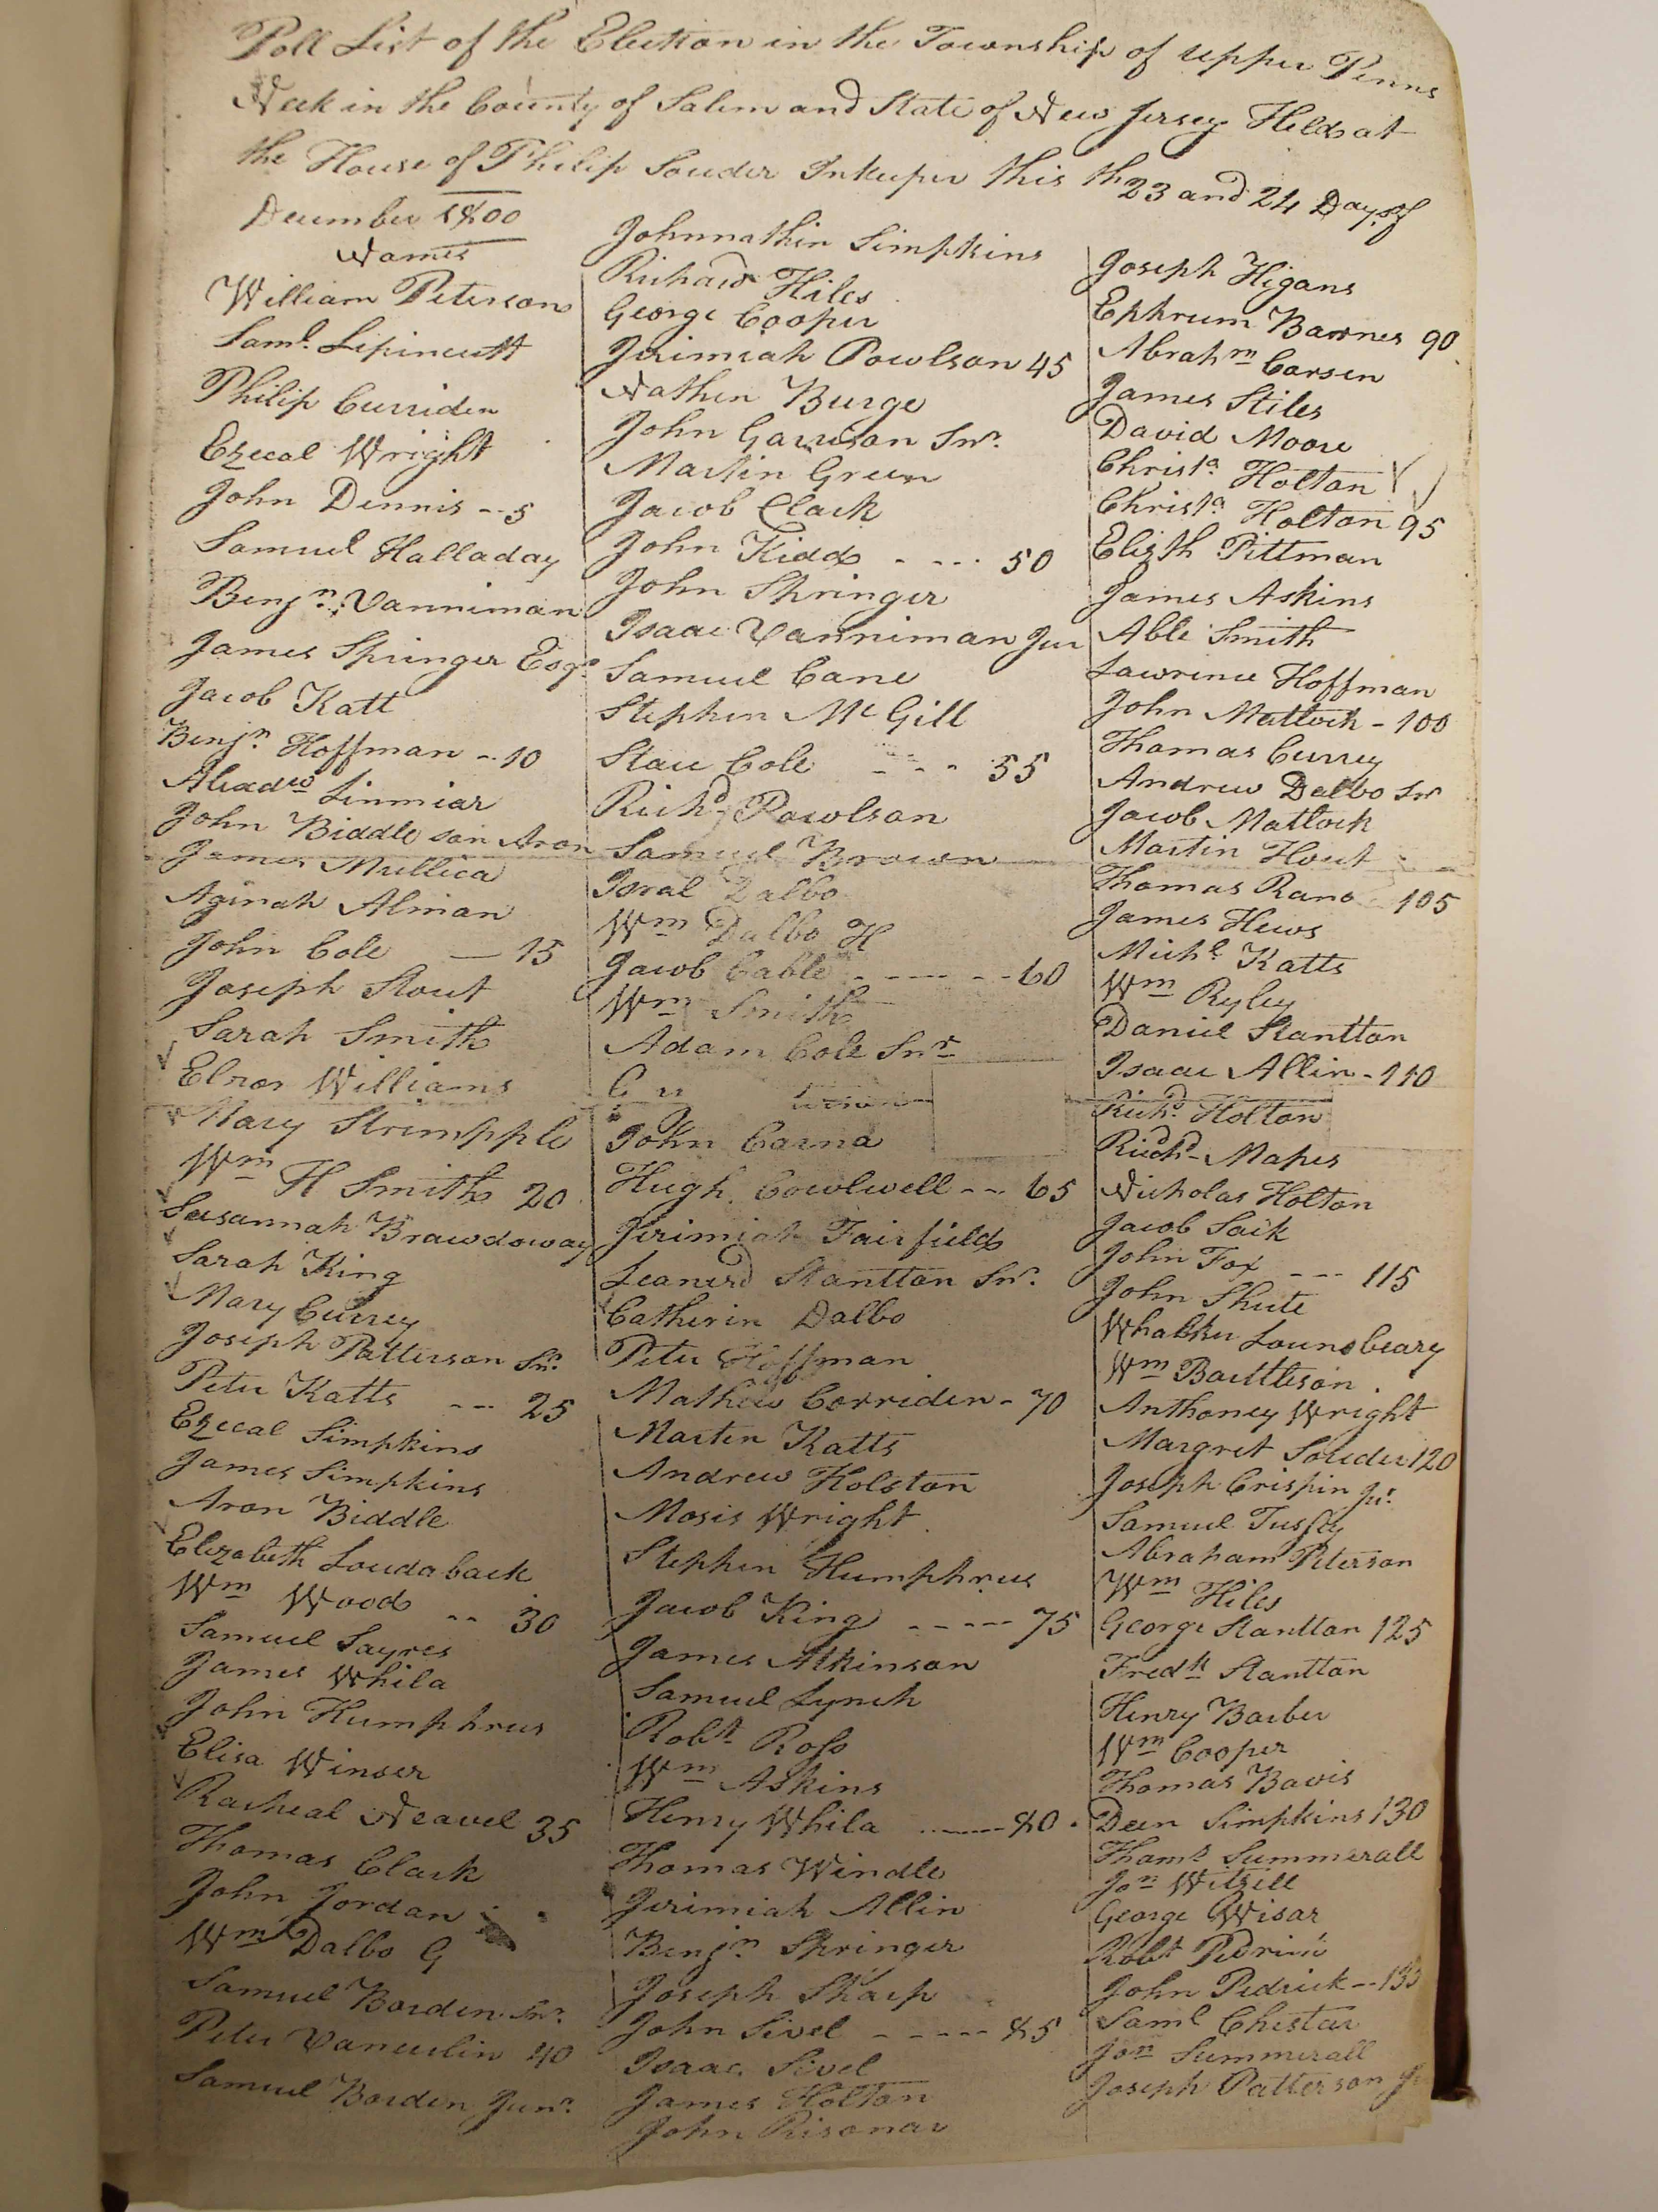 Poll List of the Election in the Township of upper Penns
Neck in the County of Salem and State of New Jersey Held at
the House of Philip Souder Inkeper this th 23 and 24 Days of
December 1800
Names
William Peterson
Saml. Lipincutt
Philip Curriden
Ezecal Wright
John Dennis -- 5
Samuel Halladay
Benjn. Vanniman
James Springer Esqr.
Jacob Katt
Benjn. Hoffman -- 10
John Biddle son Aron
James Mullica
Aginah Alman
John Cole — 15
Joseph Stout
Sarah Smith
Elnor Williams
Mary Strimpple
Wm H Smith 20
Susannah Brawdoway
Sarah King
Mary Currey
Joseph Patterson Snr.
Peter Katts --- 25
Ezecal Simpkins
James Simpkins
Aron Biddle
Elezabeth Loudaback
Wm Wood -- 30
Samuel Sayres
James Whila
John Humphrus
Elisa Winser
Racheal Neavel 35
Thomas Clark
John Jordan
Wm Dalbo G
Samuel Borden Snr.
Peter Vanculin 40
Samuel Borden Junr.
Johnnathin Simpkins
Richard Hiles
George Cooper
Jirimiah Powlson 45
Nathen Burge
John Garrison Snr.
Martin Green
Jacob Clark
John Kidd - --- 50
John Springer
Isaac Vanniman Jur
Samuel Cane
Stephen Mc Gill
Stace Cole - - - 55
Richd Powlson
Samuel Brown
Isral Dalbo
Wm Dalbo H
Jacob Cable - --- -- 60
Wm Smith
Adam Cole Snr
John Carna
Hugh Cowlwell -- 65
Jirimiah Fairfield
Leanerd Stantton Snr.
Catherin Dalbo
Peter Hoffman
Mathew Corriden - 70
Marten Katts
Andrew Holston
Mosis Wright
Stephen Humphrus
Jacob King ----- 75
James Atkinson
Samuel Lynch
Robt Ross
Wm Askins
Henry Whila ---- 80
Thomas Windle
Jirimiah Allin
Benjn Springer
Joseph Sharp
John Sivel ----- 85
Isaac Sivel
James Holton
John Risonar
Joseph Higans
Ephrum Barnes 90
Abrahm Corsen
James Stiles
David Moore
Christa. Holton
Christa. Holton 95
Elizth Pittman
James Askins
Able Smith
Lawrence Hoffman
John Mattock - 100
Thomas Currey
Andrew Dalbo Snr
Jacob Mattock
Martin Hout
Thomas Rano 105
James Hews
Michl Katts
Wm Ryley
Daniel Stantton
Isaac Allin - 110
Richd. Holton
Richd - Mapes
Nicholas Holton
Jacob Sack
John Fox --- 115
John Shute
Whalker Lounsbeary
Wm Barttleson
Anthoney Wright
Margret Souder 120
Joseph Crispin Jr.
Samuel Tussey
Abraham Peterson
Wm Hiles
George Stantton 125
Fredk Stantton
Henry Barber
Wm Cooper
Thomas Bavis
Deen Simpkins 130
Thoms Summerall
Jon Witsell
George Wisar
Robt
John Pedrick -- 135
Saml Chestar
Jon Summerall
Joseph Patterson